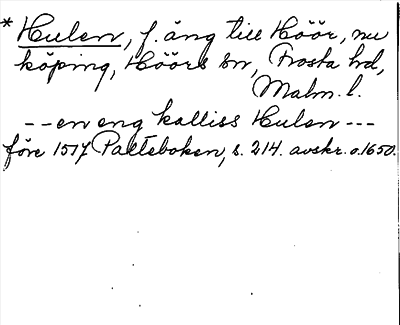 * Hulen, f. äng till Höör, nu
köping, Höörs sn, Frosta hd,
Malm. l.
-- en eng kalliss Hulen ---
före 1517 Palteboken, s. 214. avskr. o. 1650.